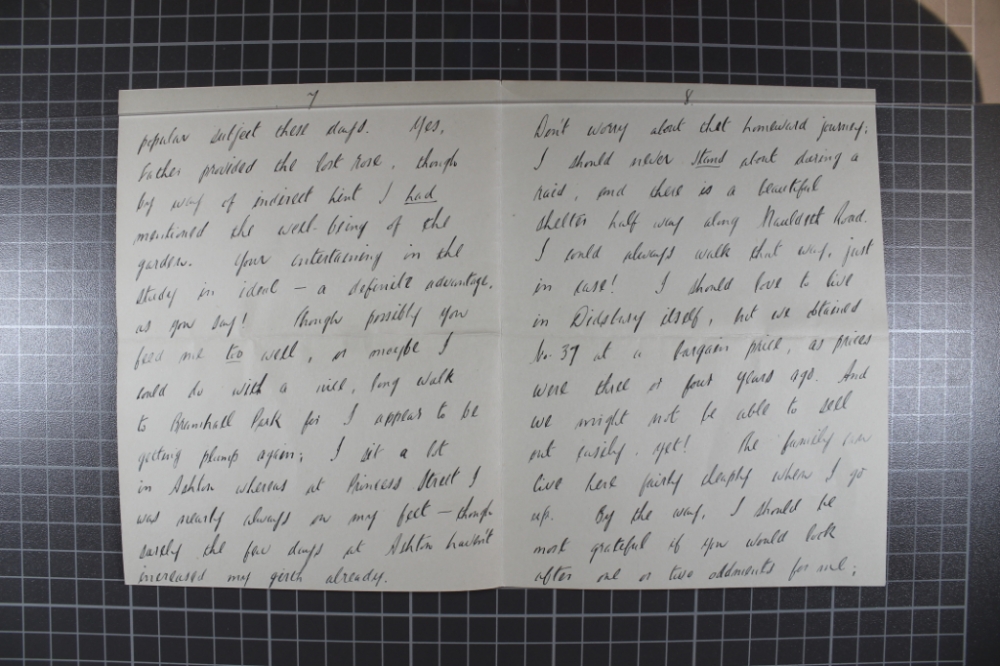 7
popular subject these days. Yes,
Father provided the lost rose, though
by way of indirect hint I had
mentioned the well-being of the
garden. Your entertaining in the
study in ideal — a definite advantage,
as you say! Though possibly you
feed me too well, or maybe I
could do with a nice, long walk
to Bramhall Park for I appear to be
getting plump again; I sit a lot
in Ashton whereas at Princess Street I
was nearly always on my feet — though
surely the few days at Ashton haven't
increased my girth already.
8
Don't worry about that homeward journey;
I should never stand about during a
raid, and there is a beautiful
shelter half way along Mauldeth Road.
I could always walk that way, just
in case! I should love to live
in Didsbury itself, but we obtained
No. 37 at a bargain price, as prices
were three or four years ago. And
we might not be able to sell
out easily, yet! The family can
live here fairly cheaply when I go
up. By the way, I should be
most grateful if you would look
after one or two oddments for me;